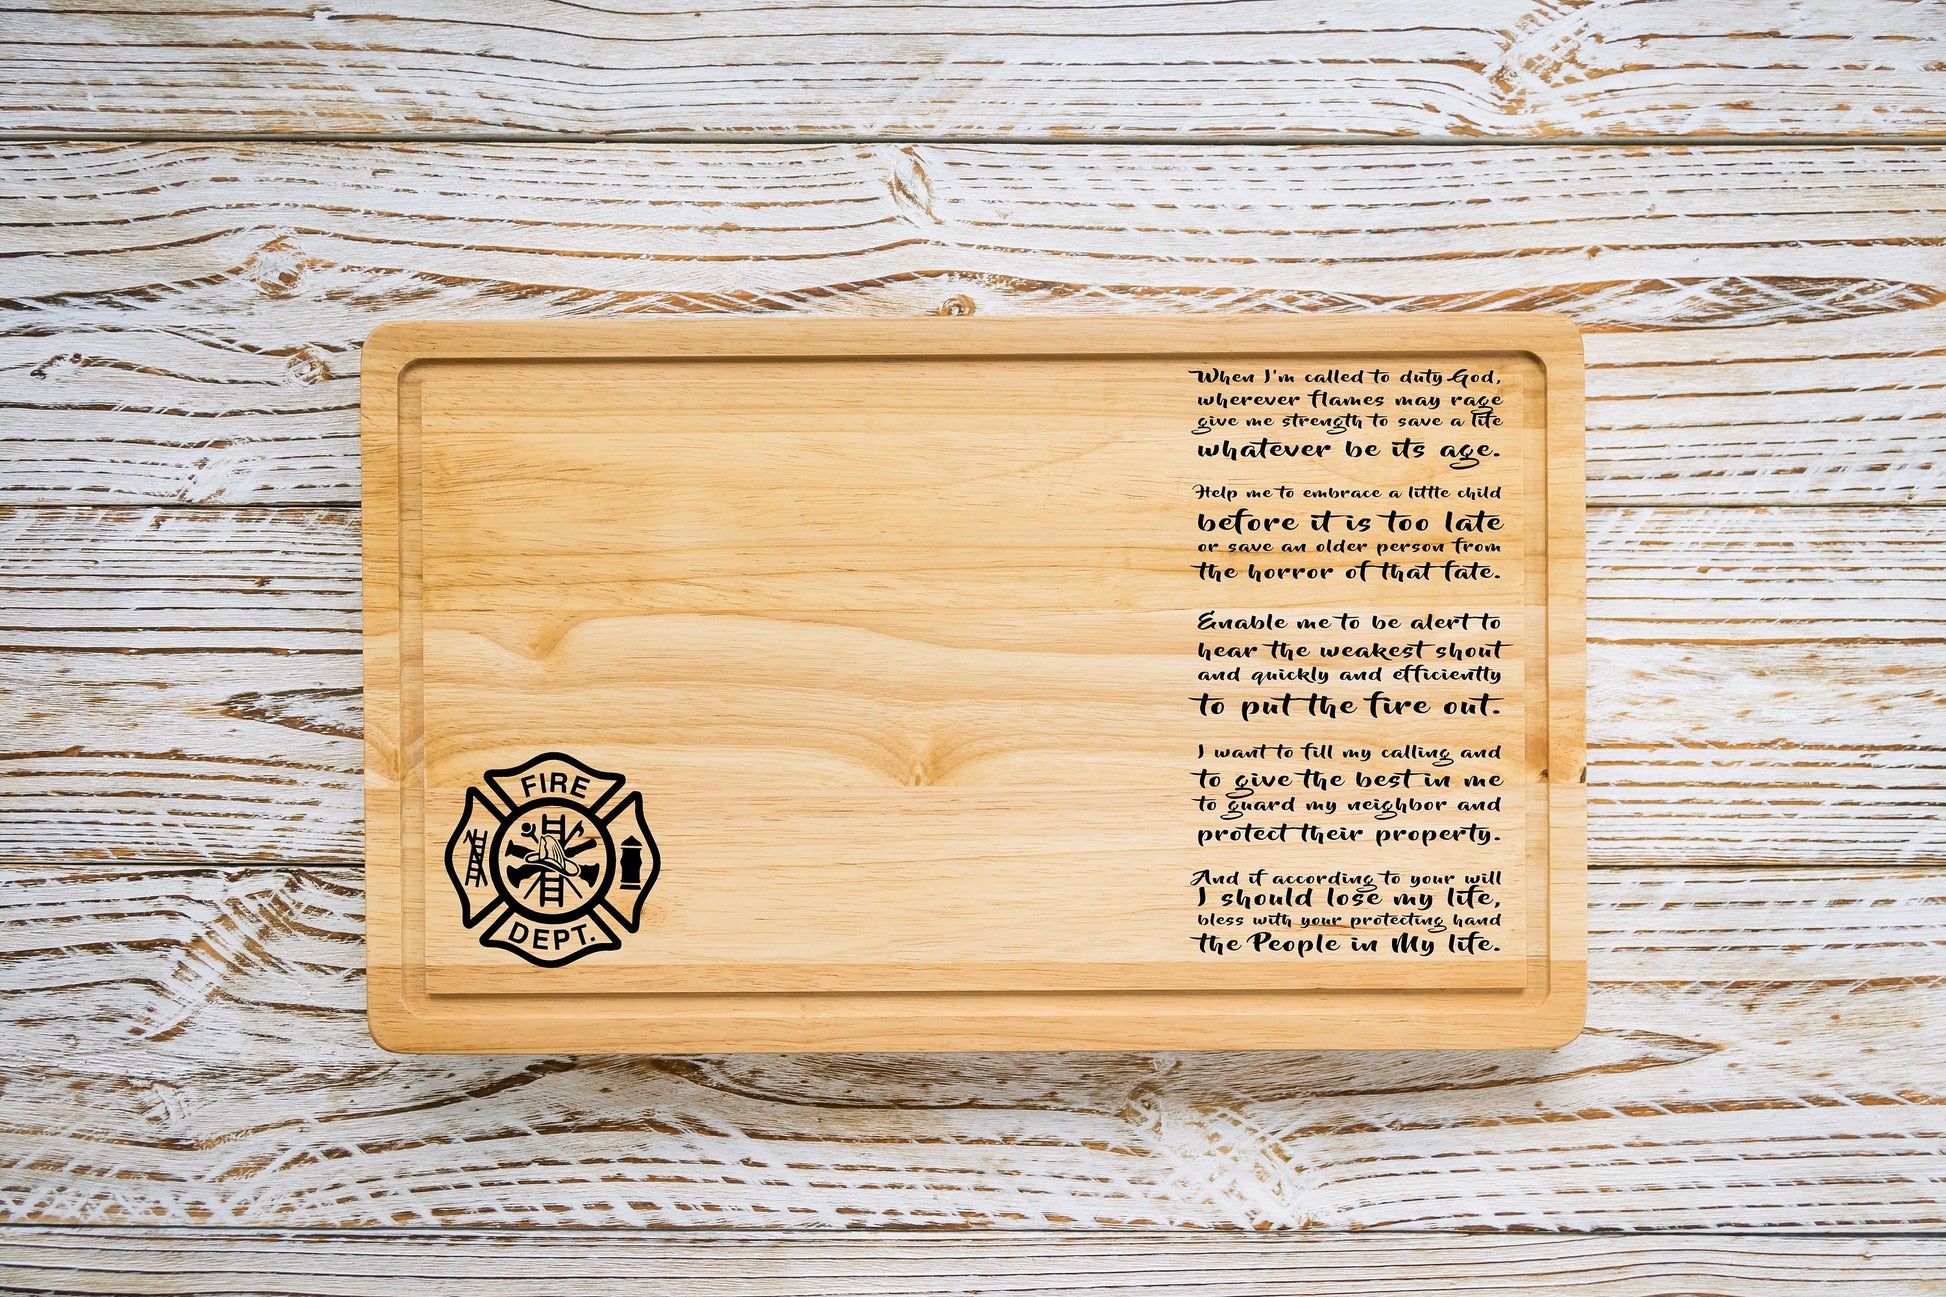 When I'm called to duty God,
wherever flames may rage
give me strength to save a life
whatever be its age.
Help me to embrace a little child
before it is too late
or save an older person from
the horror of that fate.
Enable me to be alert to
hear the weakest shout
and quickly and efficiently
to put the fire out.
I want to fill my calling and
to give the best in me
to guard my neighbor and
protect their property.
And if according to your will
I should lose my life,
bless with your protecting hand
the People in My life.
FIRE
DEPT.